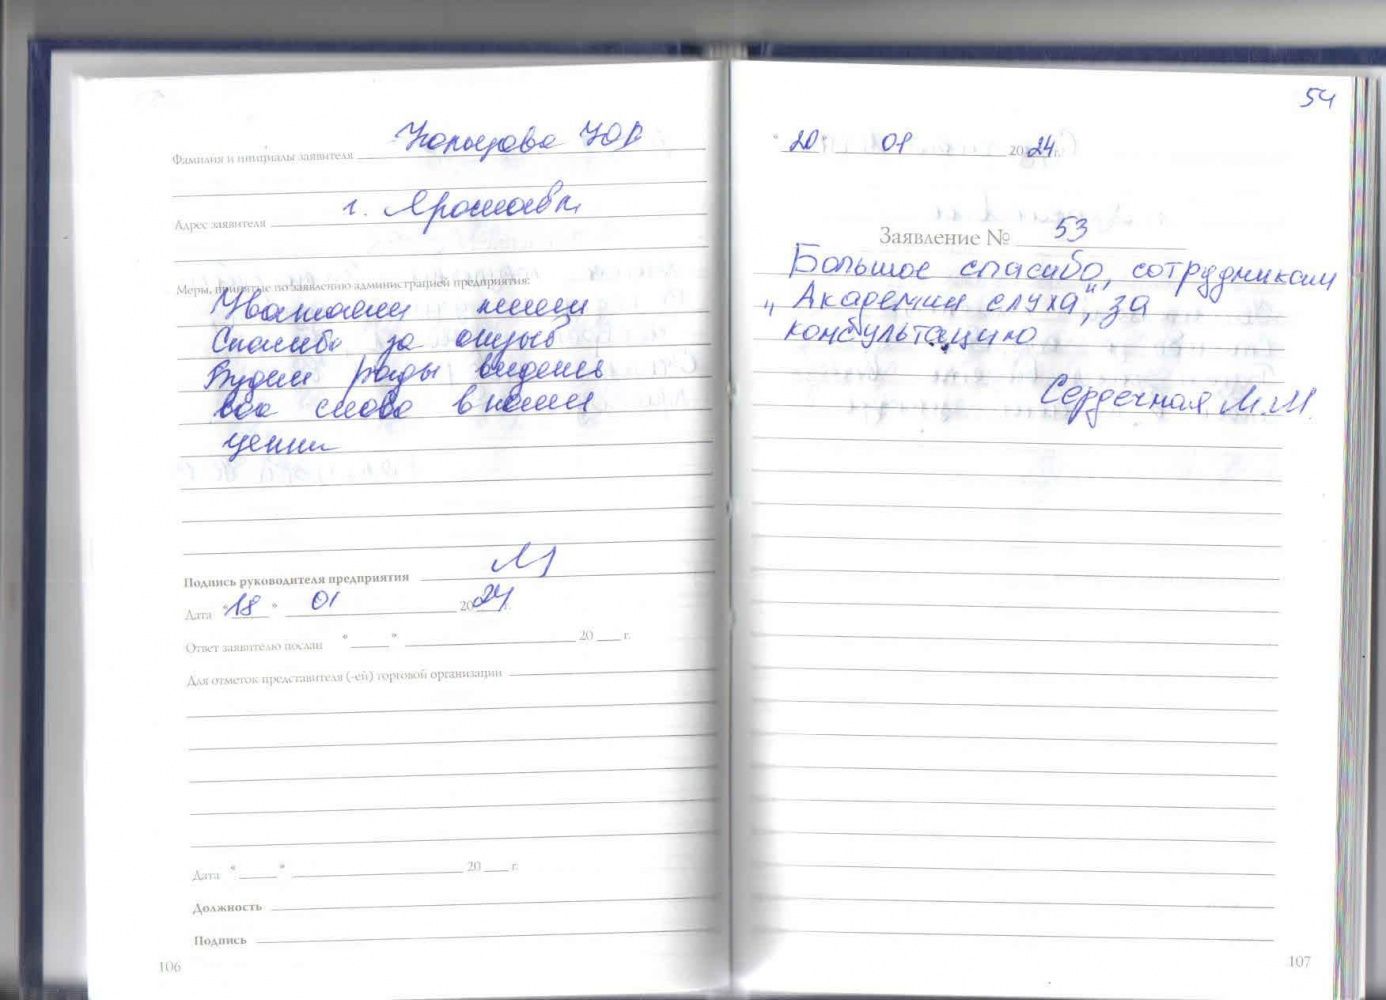 Фамилия и инициалы заявителя Ю.В.
Адрес заявителя г. Ярославль
Меры, принятые по заявлению администрацией предприятия:
Спасибо за отзыв
Будем рады видеть
вас снова в нашем
центре
Подпись руководителя предприятия
Дата "18" 01 2024 г.
Ответ заявителю послан "____" 20 ___ г.
Для отметок представителя (-ей) торговой организации
Дата "____" 20 ___ г.
Должность
Подпись
106
54
"20" 01 2024 г.
Заявление № 53
Большое спасибо, сотрудникам
"Академии слуха", за
консультацию
Сердечная М.И.
107